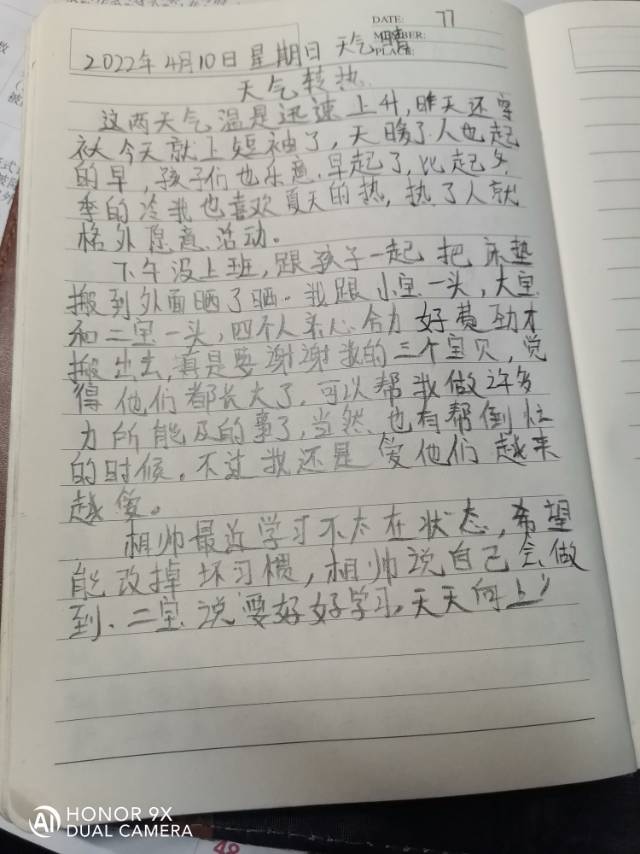 DATE: 77
NUMBER:
PLACE:
2022年4月10日 星期日 天气晴
天气转热
这两天气温是迅速上升,昨天还穿
大今天就上短袖了,天暖了人也起
的早,孩子们也乐意早起了,比起冬
季的冷我也喜欢夏天的热,热了人就
格外愿意活动。
下午没上班,跟孩子一起把床垫
搬到外面晒了晒。我跟小宝一头,大宝
和二宝一头,四个人齐心合力好费劲才
搬出去,真是要谢谢我的三个宝贝,觉
得他们都长大了,可以帮我做许多
力所能及的事了,当然也有帮倒忙
的时候,不过我还是爱他们越来
越爱。
相帅最近学习不太在状态,希望
能改掉坏习惯,相帅说自己会做
到、二宝说要好好学习,天天向上
HONOR 9X
AI DUAL CAMERA
49